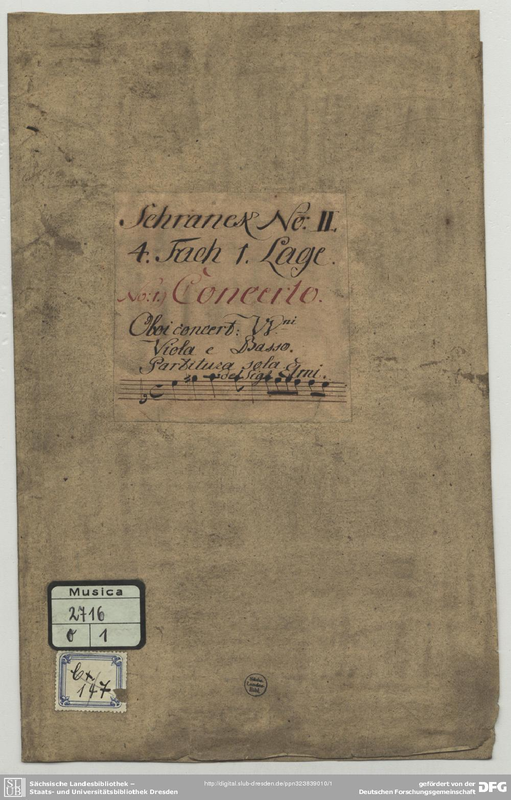 Schranck No: II.
4. Fach 1. Lage.
No: 1. Concerto.
Oboi concert: VVni
Viola e Basso.
Partitura sola
del Sigr
Musica
2716
O 1
Cx
147
Sächsische Landesbibliothek –
Staats- und Universitätsbibliothek Dresden
http://digital.slub-dresden.de/ppn323839010/1
gefördert von der
Deutschen Forschungsgemeinschaft
DFG